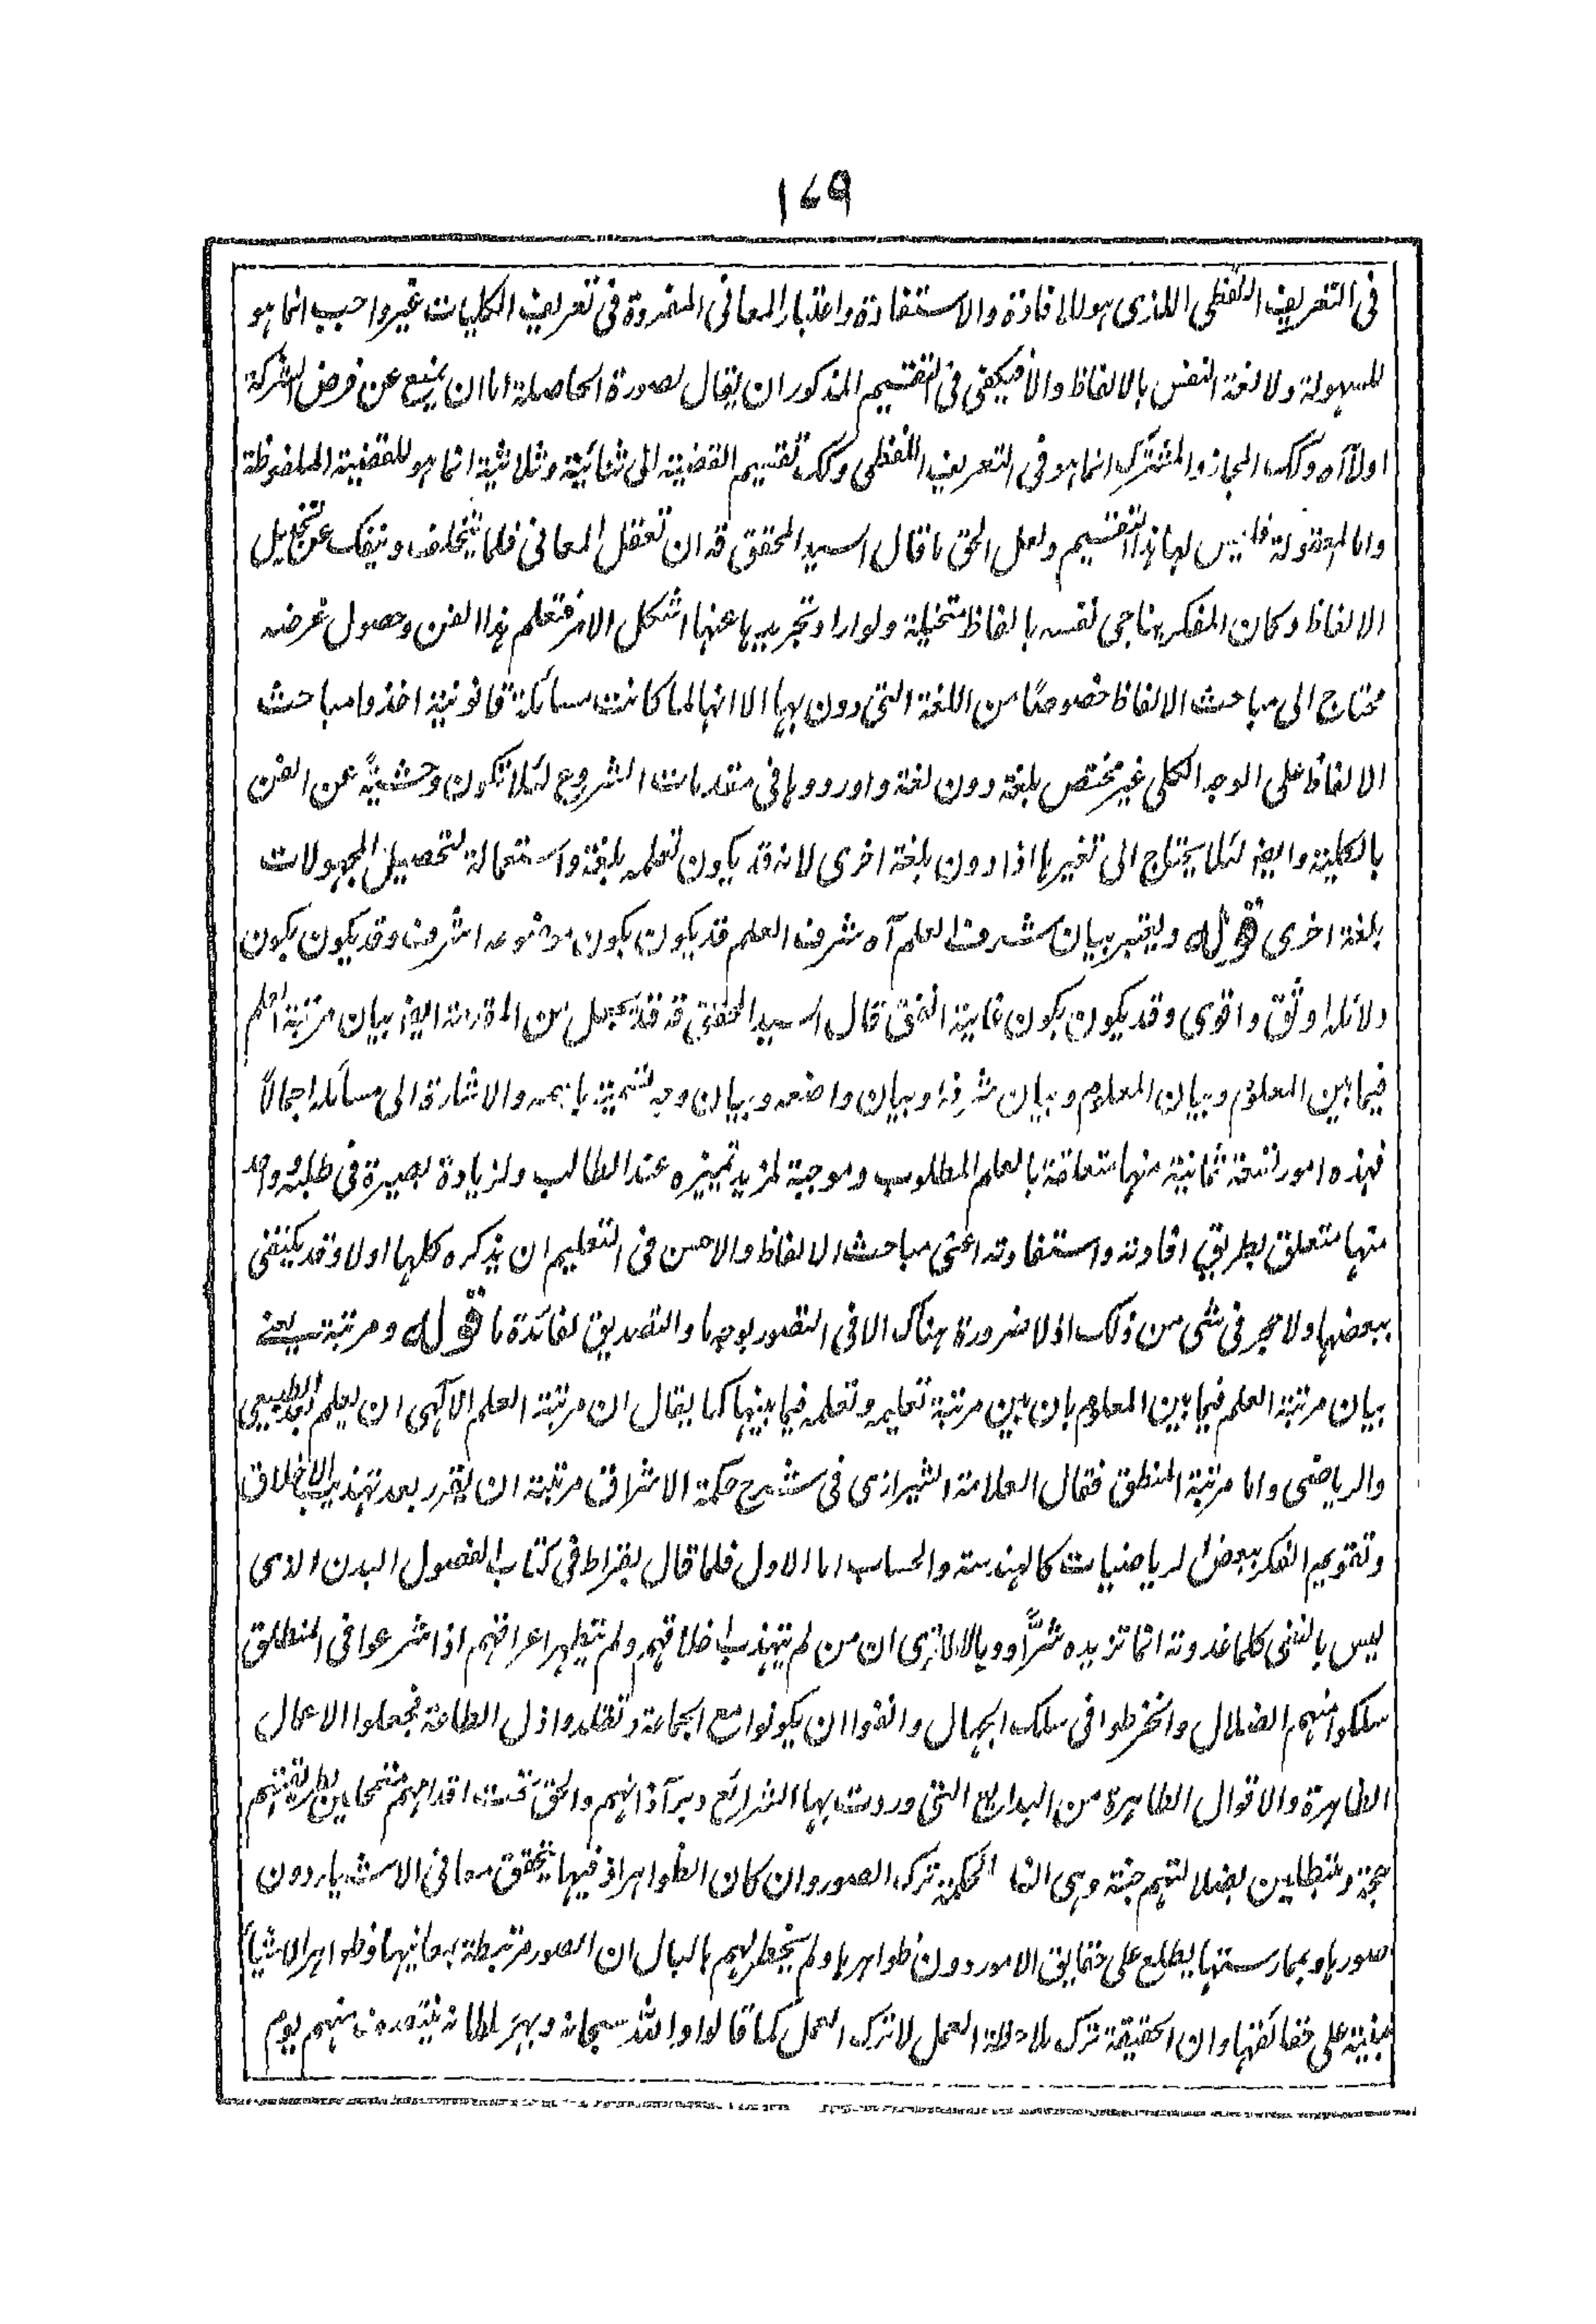 ١٧٩
فى التعريف اللفظى الذى هو للافادة والاستفادة واعتبار المعانى المفردة فى تعريف الكليات غير واجب انما هو
للسهولة ولالفة النفس بالالفاظ والا فيكفى فى التقسيم المذكور ان يقال لصورة الحاصلة اما ان يمنع عن فرض الشركة
اولا آه وكك المجاز والمشترك انما هو فى التعريف اللفظى وكك تقسيم القضية الى ثنائية وثلاثية انما هو للقضية الملفوظة
واما المعقولة فليس لها هذا التقسيم ولعل الحق ما قال السيد المحقق قد ان تعقل المعانى قلما يتخلف وينفك عن تخييل
الالفاظ وكان المفكر يناجى نفسه بالفاظ متخيلة ولو اراد تجريدها عنها اشكل الامر فتعلم هذا الفن وحصول غرضه
محتاج الى مباحث الالفاظ خصوصًا من اللغة التى دون بها الا انها لما كانت مسائله قانونية اخذوا مباحث
الالفاظ على الوجه الكلى غير مختص بلغة دون لغة واوردوها فى مقدمات الشروع لئلا تكون وحشيةً عن الفن
بالكلية وايضا لئلا يحتاج الى تغييرها اذا دون بلغة اخرى لانه قد يكون تعلمه بلغة واستعماله لتحصيل المجهولات
بلغة اخرى قوله ويعتبر بيان شرف العلم آه شرف العلم قد يكون بكون موضوعه اشرف وقد يكون بكون
دلائله اوثق واقوى وقد يكون بكون غاية الفن قال السيد المحقق قد قد يجعل من المقدمة ايضا بيان مرتبة العلم
فيما بين العلوم وبيان المعلوم وبيان شرفه وبيان واضعه وبيان وجه تسمية باسمه والاشارة الى مسائله اجمالاً
فهذه امور تسعة ثمانية منها متعلقة بالعلم المطلوب وموجبة لمزيد تميزه عند الطالب ولزيادة بصيرة فى طلبه وواحد
منها متعلق بطريق افادته واستفادته اعنى مباحث الالفاظ والاحسن فى التعليم ان يذكره كلها اولا وقد يكتفى
ببعضها ولا حجر فى شى من ذلك اذ لا ضرورة هناك الا فى التصور بوجه ما والتصديق لفائدة ما قوله ومرتبته يعنے
بيان مرتبة العلم فيما بين العلوم بان بين مرتبة تعليمه وتعلمه فيما بينها كما يقال ان مرتبة العلم الآلهى ان يعلم بعد الطبيعى
والرياضى واما مرتبة المنطق فقال العلامة الشيرازى فى شرح حكمة الاشراق مرتبته ان يقرر بعد تهذيب الاخلاق
وتقويم الفكر ببعض الرياضيات كالهندسة والحساب اما الاول فلما قال بقراط فى كتاب الفصول البدن الذى
ليس بالنقى كلما غذوته انما تزيده شرًّا ووبالا الا ترى ان من لم يتهذب اخلاقهم ولم يتطهر اعراقهم اذا شرعوا فى المنطق
سلكوا منهم الضلال وانخرطوا فى سلك الجهال وانفوا ان يكونوا مع الجماعة وتقلدوا ذل الطاعة فجعلوا الاعمال
الطاهرة والاقوال الظاهرة من البدايع التى وردت بها الشرائع دبر آذانهم والحق تحت اقدامهم متمحلين لطريقتهم
حجة ومتطلبين لضلالتهم جنة وهى الحكمة ترك الصور وان كان الظواهر اذ فيها يتحقق معانى الاشياء دون
صورها وبممارستها يطلع على حقايق الامور دون ظواهرها ولم يخطر لهم بالبال ان الصور مرتبطة بمعانيها وظواهر الاشياء
مبنية على حقائقها وان الحقيقة ترك ملاحظة العمل لا ترك العمل كما قالوا والله سبحانه وبهر سلطانه ينتصف منهم يوم